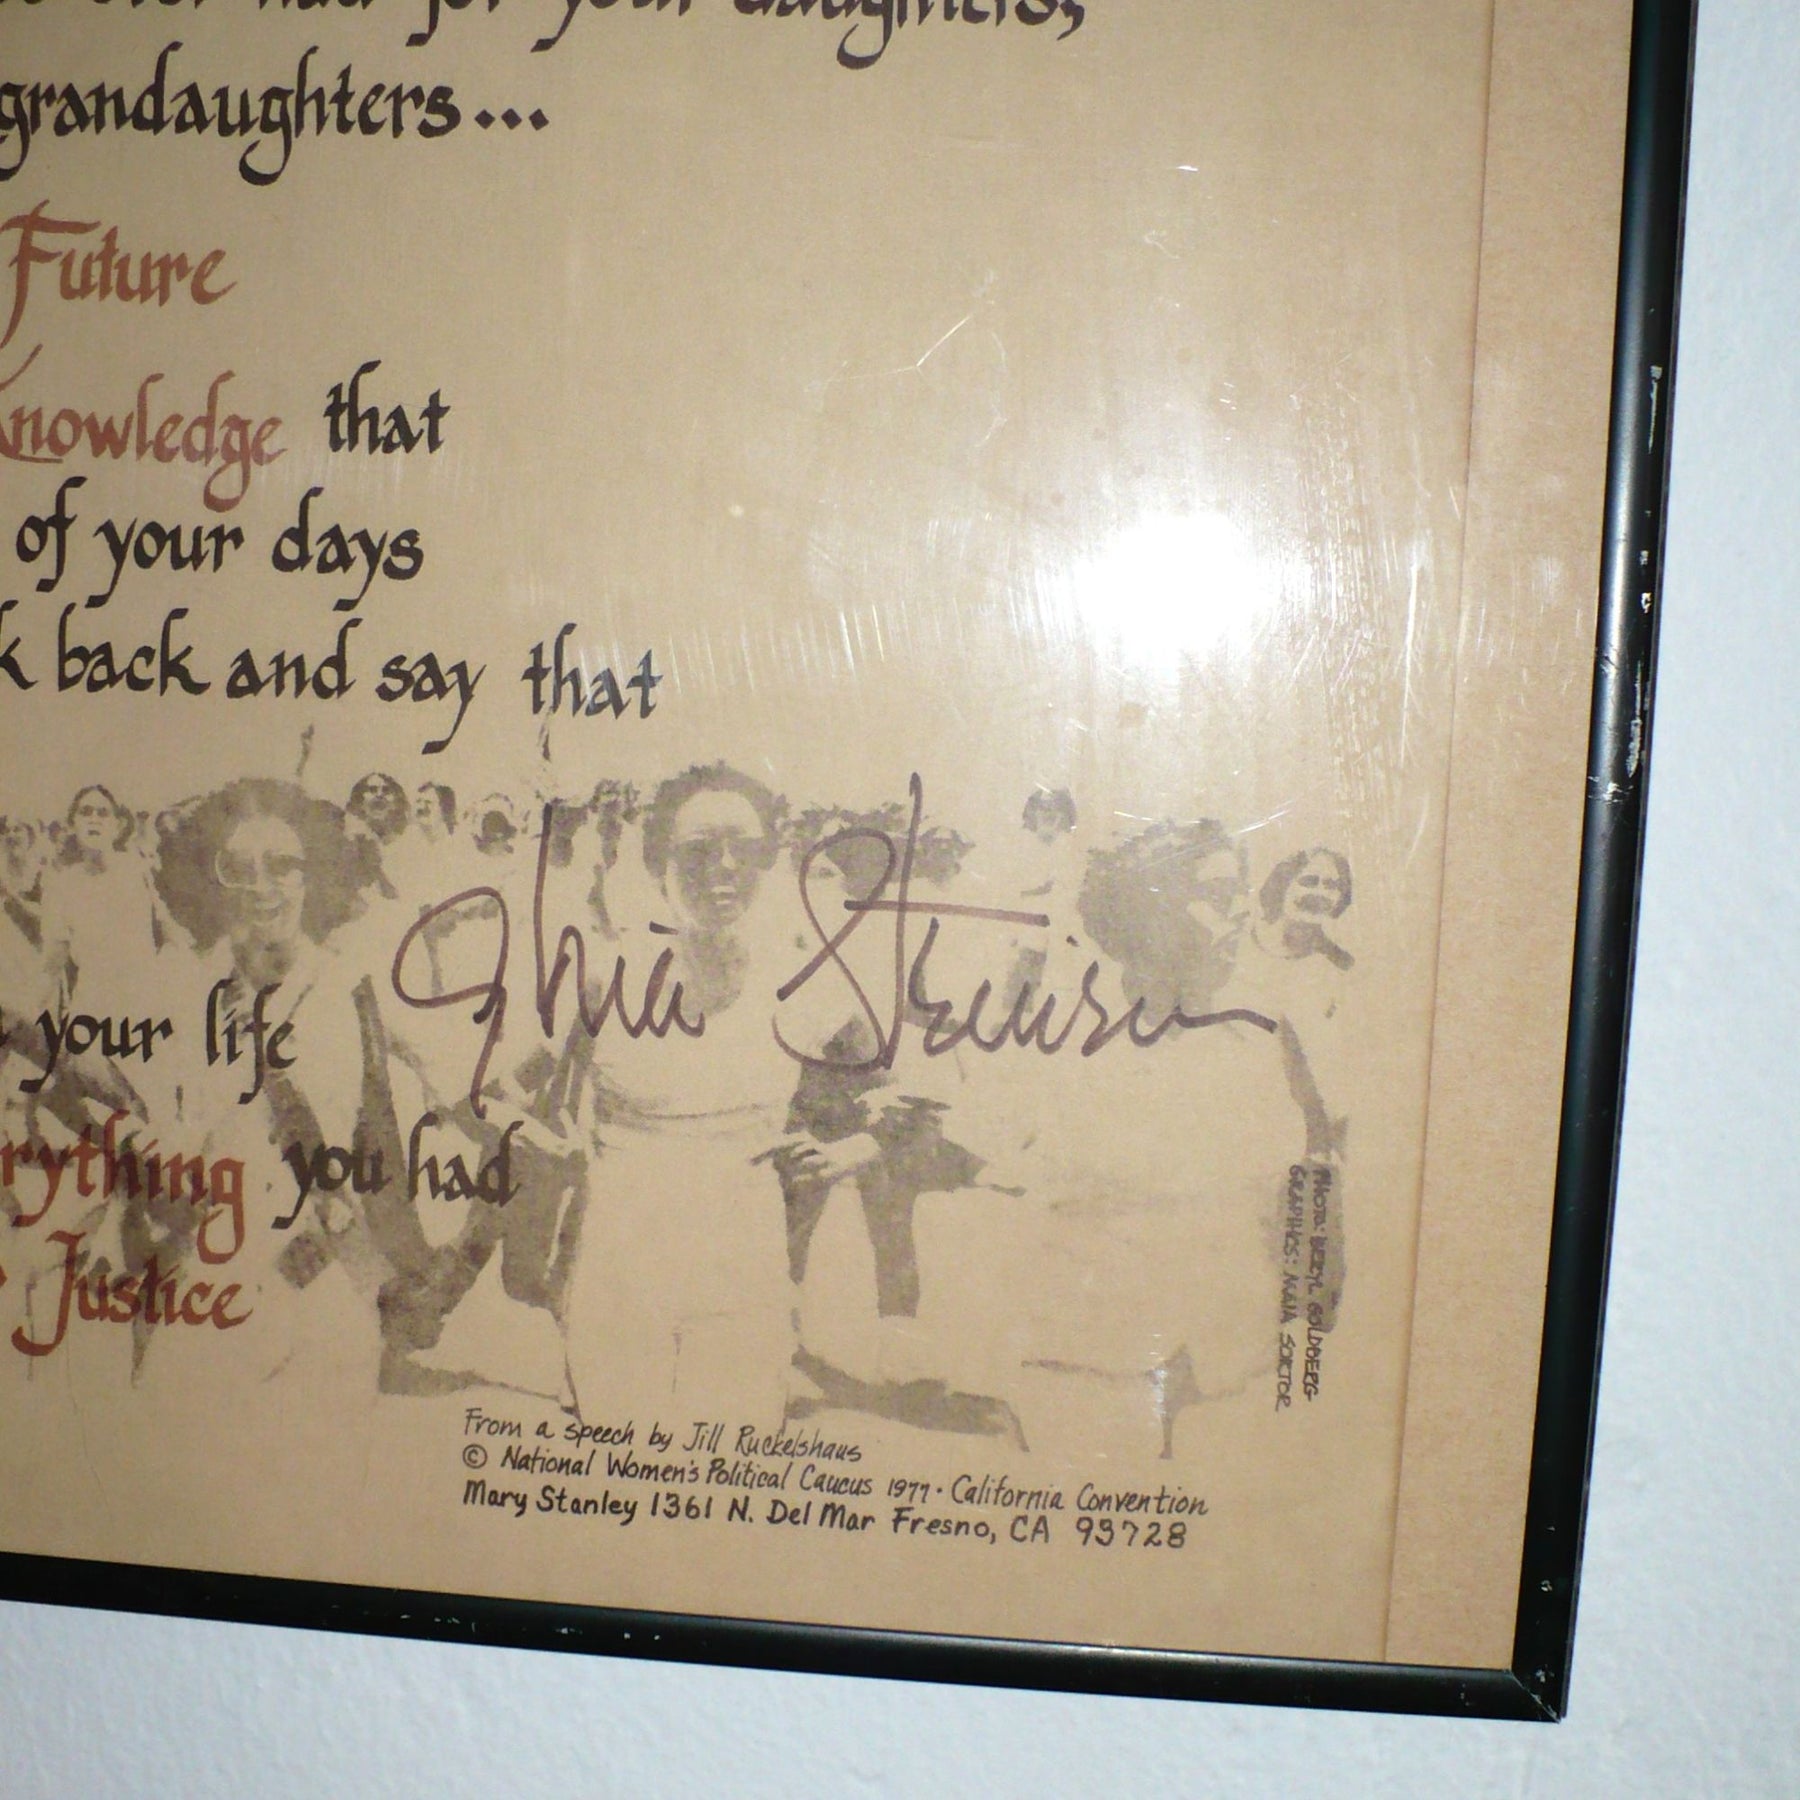 ever had for your daughters,
grandaughters...
Future
Knowledge that
of your days
back and say that
Gloria Steinem
your life
you had
Justice
PHOTO: BERYL GOLDBERG
GRAPHICS: MAIA SORTOR
From a speech by Jill Ruckelshaus
© National Women's Political Caucus 1977 · California Convention
Mary Stanley 1361 N. Del Mar Fresno, CA 93728